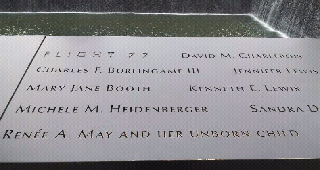 FLIGHT 77 DAVID M. CHARLEBOIS
CHARLES F. BURLINGAME III JENNIFER LEWIS
MARY JANE BOOTH KENNETH E. LEWIS
MICHELE M. HEIDENBERGER SANDRA D
RENÉE A. MAY AND HER UNBORN CHILD